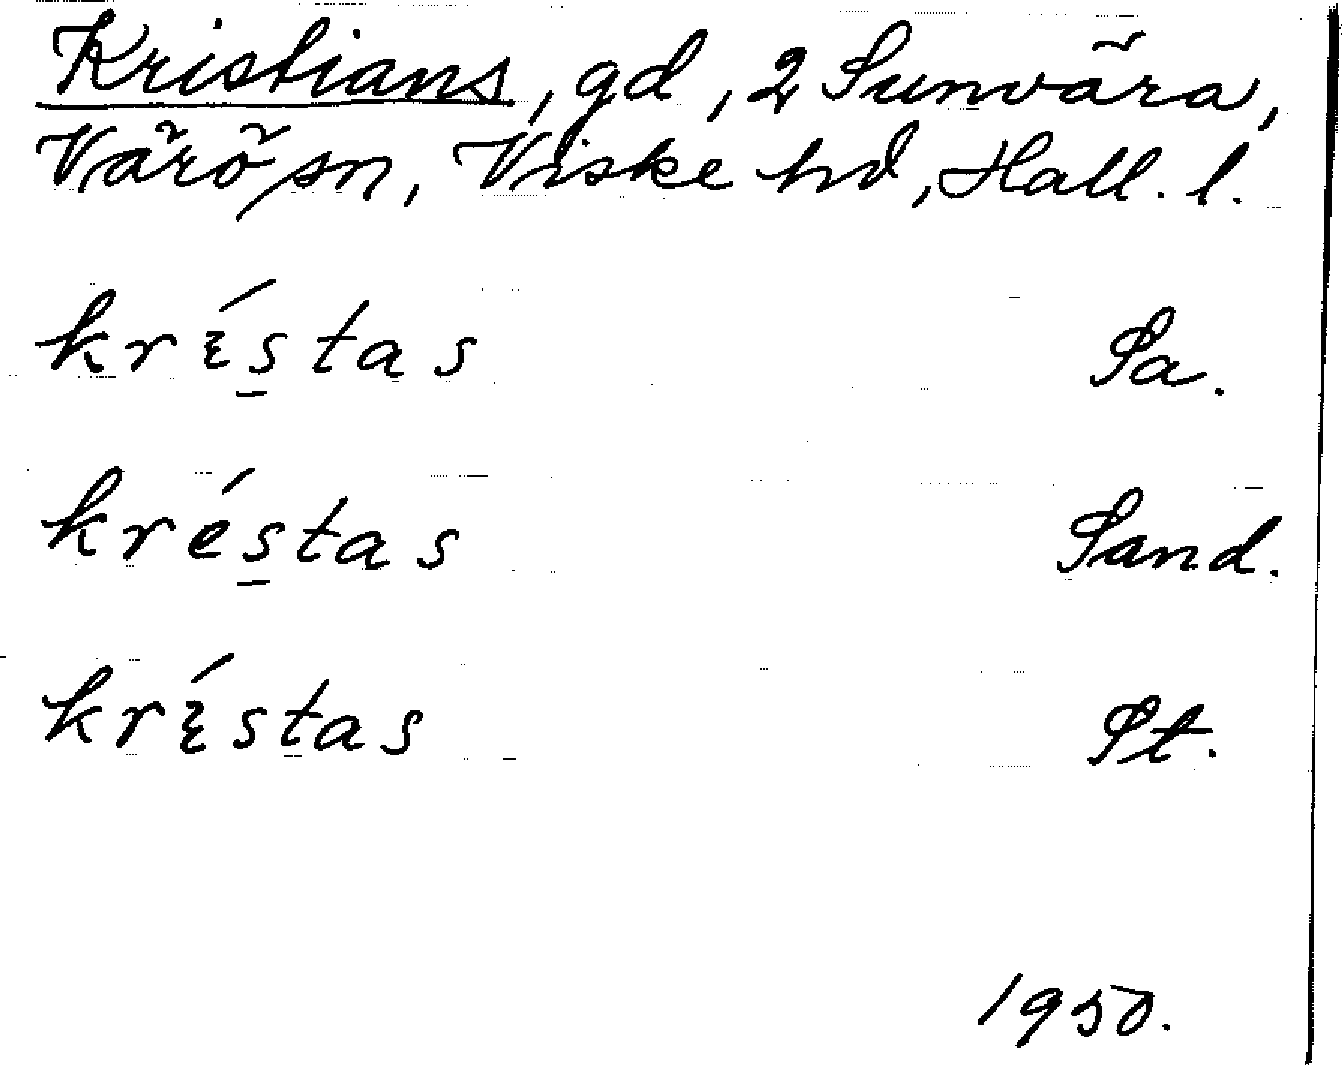 Kristians, gd, 2 Sunvära,
Värö sn, Viske hd, Hall. l.
krɛ́s̱tas Sa.
krés̱tas Sand.
krɛ́stas St.
1950.